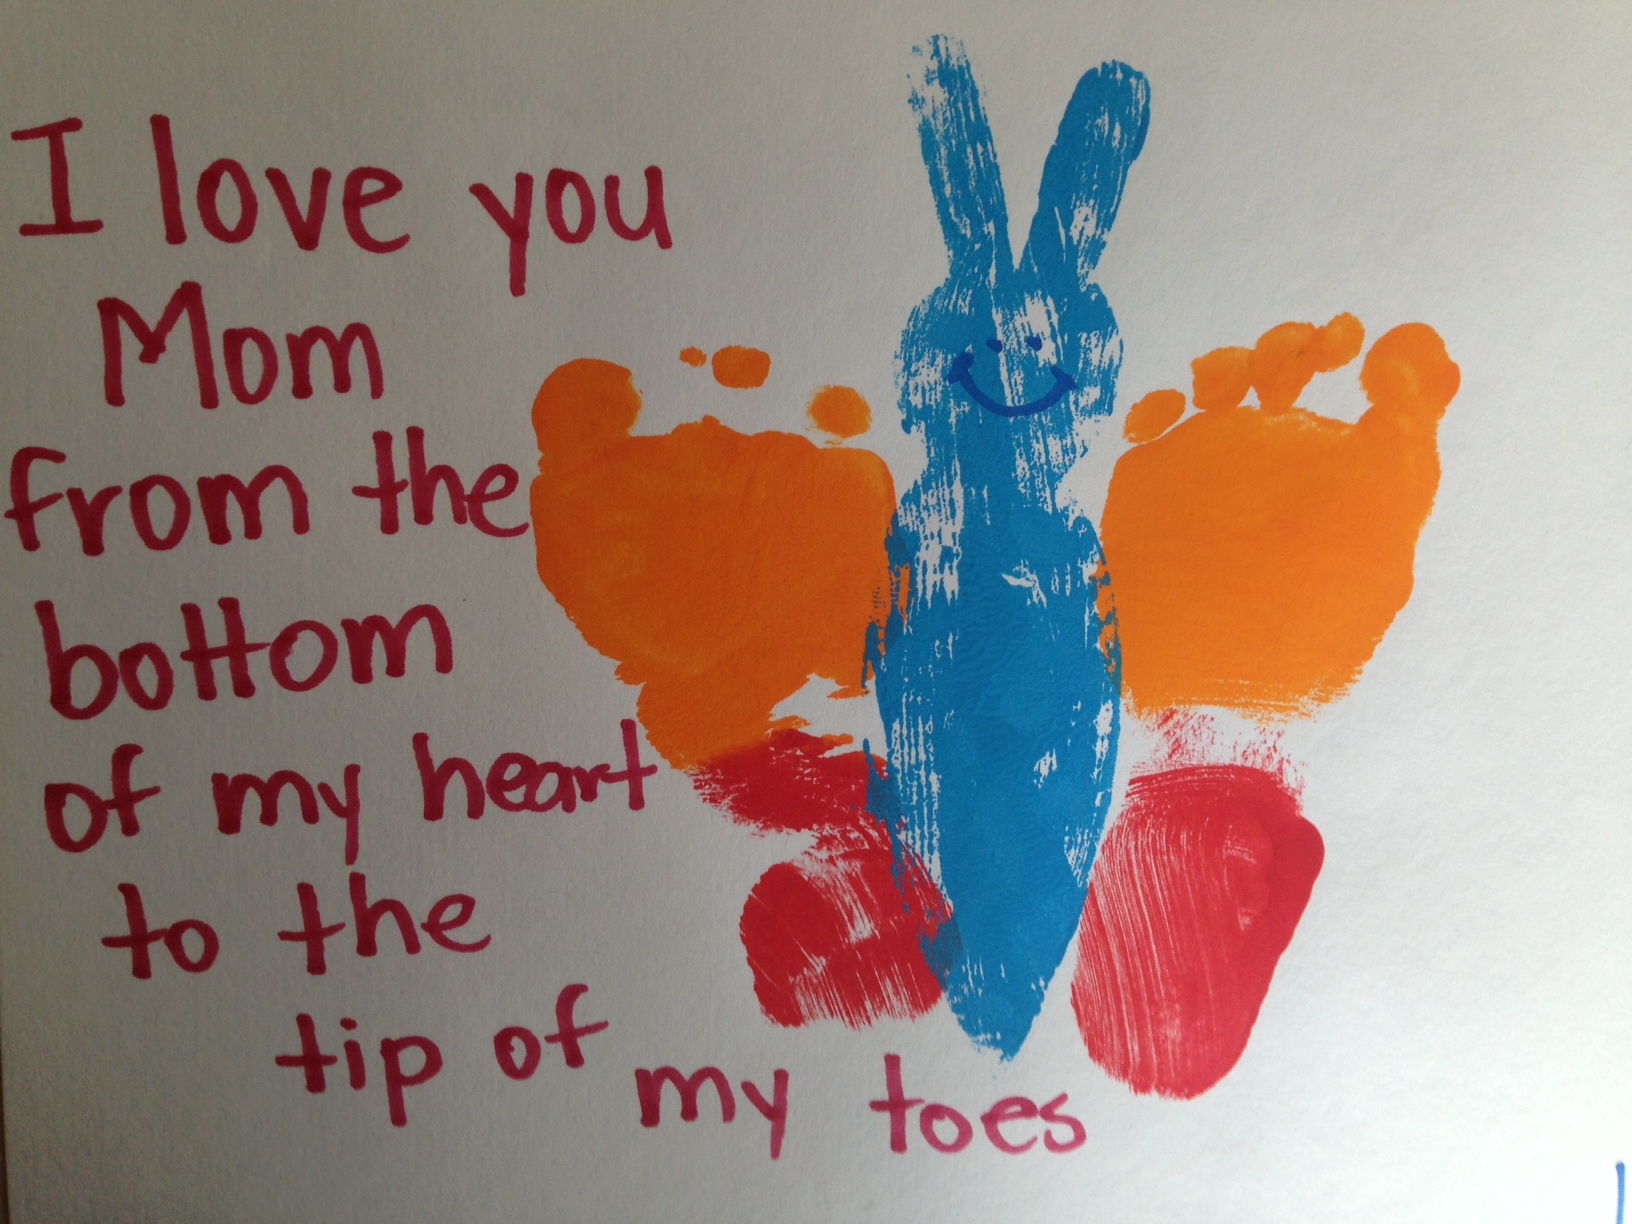 I love you
Mom
from the
bottom
of my heart
to the
tip of
my toes